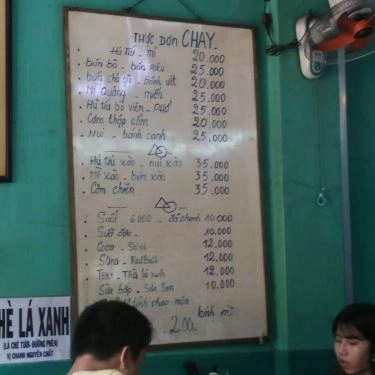 THỰC ĐƠN CHAY.
Hủ tíu - mì 20.000
bún bò - bún riêu 25.000
bún chả cá - bánh ướt 20.000
Mì Quảng - miến 25.000
Hủ tíu bò viên - PHỞ 25.000
Cơm thập cẩm 20.000
Nui - bánh canh 25.000
Hủ tíu xào - nui xào 35.000
Mì xào - bún xào 35.000
Cơm chiên 35.000
Suối 6000 - đá chanh 10.000
Suối 10.000
Coca - Sá xị 12.000
Sting - Redbull 12.000
TEA+ - Trà lá xanh 12.000
Sữa bắp - Sâm 10.000
tính theo món
bánh mì
2.000
HÈ LÁ XANH
(LÁ CHÈ TƯƠI - ĐƯỜNG PHÈN)
VỊ CHANH NGUYÊN CHẤT